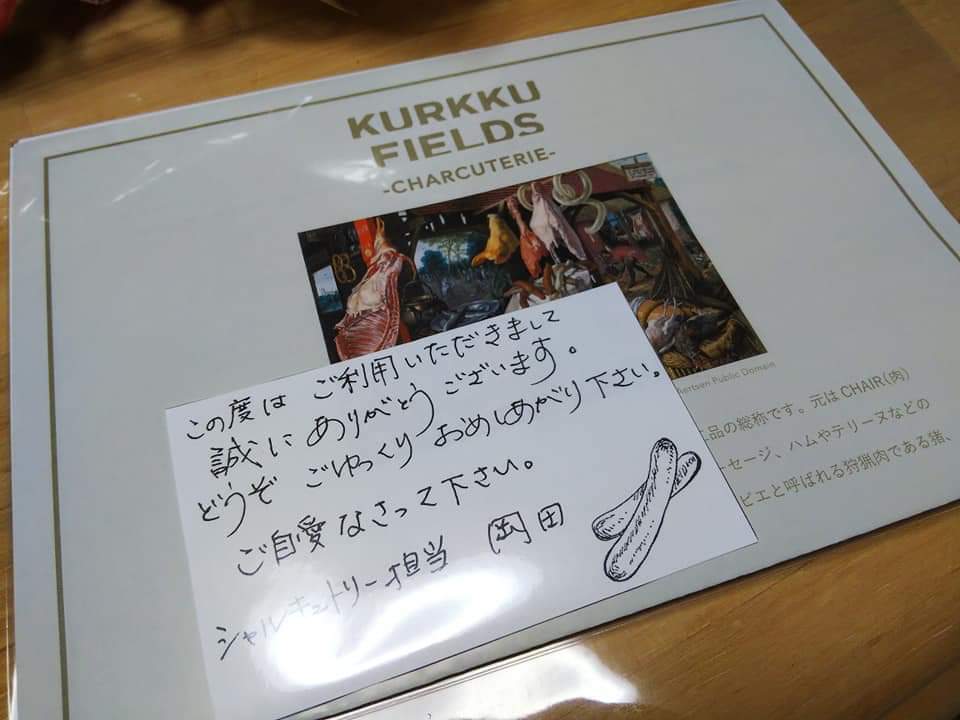 KURKKU
FIELDS
-CHARCUTERIE-
Aertsen Public Domain
品の総称です。元はCHAIR(肉)
セージ、ハムやテリーヌなどの
ビエと呼ばれる狩猟肉である猪、
この度は ご利用いただきまして
誠に ありがとうございます。
どうぞ ごゆっくり おめしあがり下さい。
ご自愛なさって下さい。
シャルキュトリー担当 岡田